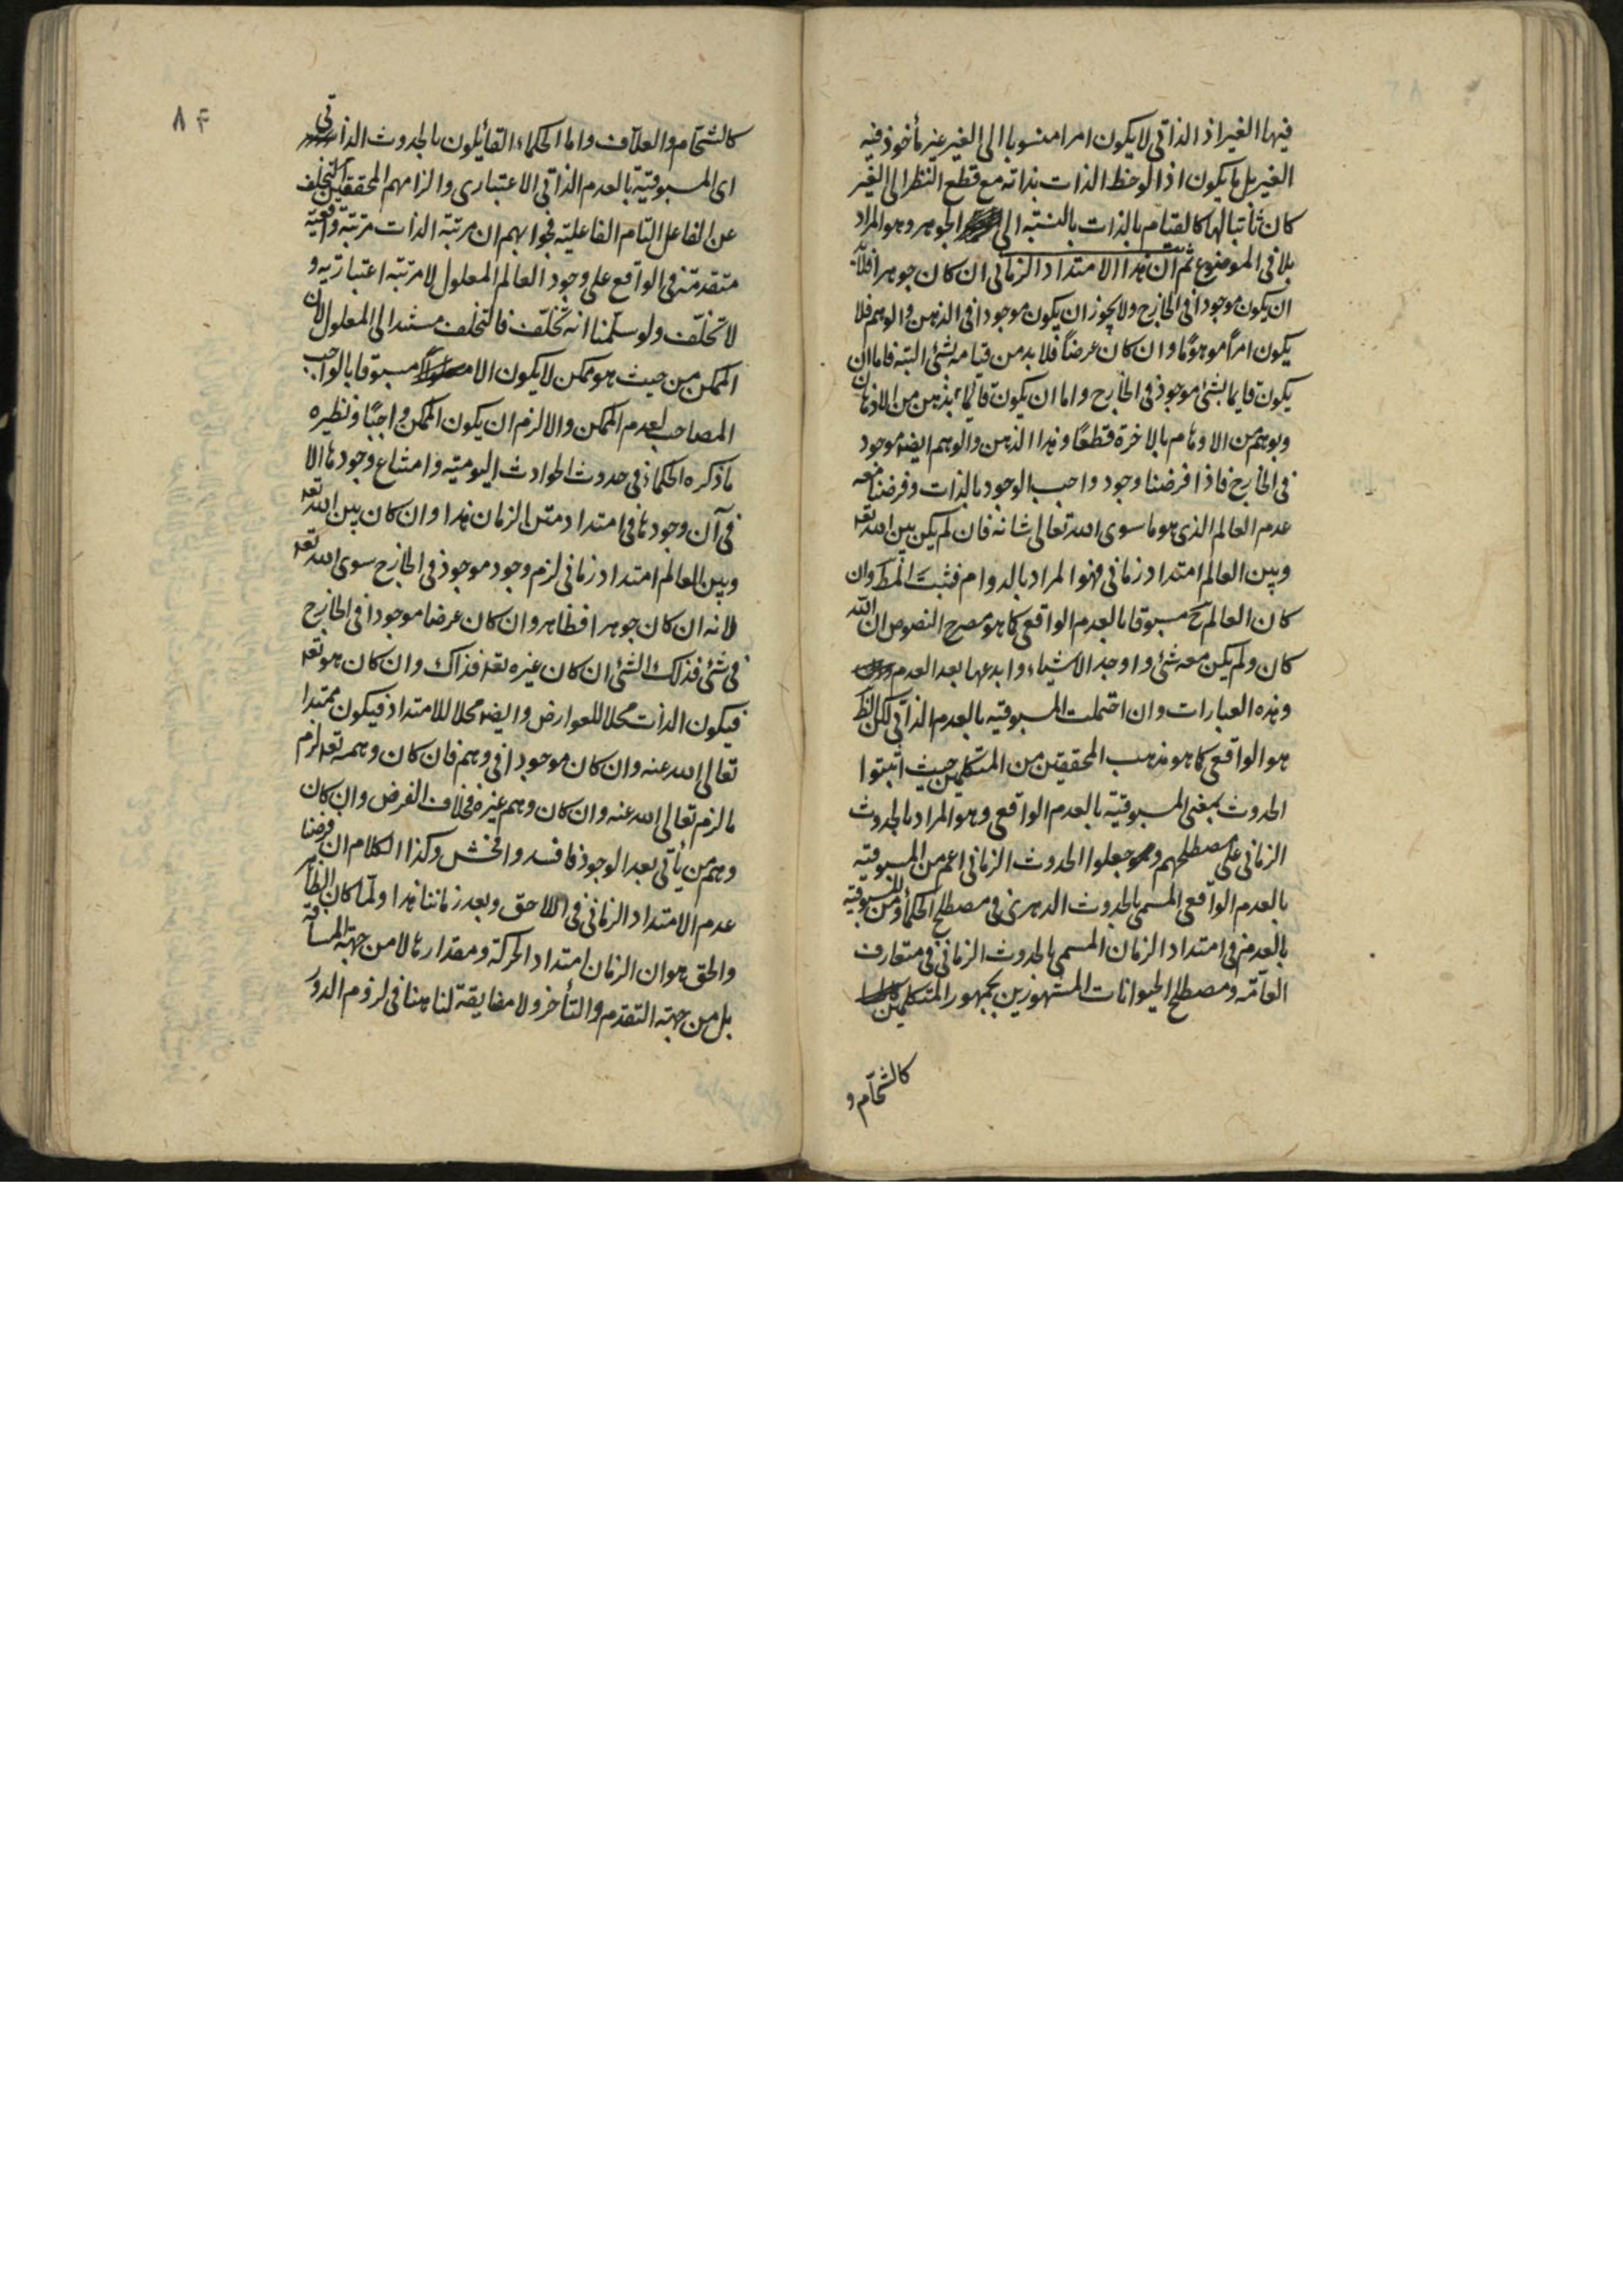 فيها الغير اذ الذاتي لا يكون امرا منسوبا الى الغير غير مأخوذ فيه
الغير بل ما يكون اذا لوحظ الذات بذاته مع قطع النظر الى الغير
كان ثابتا لها كالقيام بالذات بالنسبة الى الجوهر وهو المراد
بلا فى الموضوع ثم ان هذا الامتداد الزماني ان كان جوهرا فلا بد
ان يكون موجودا فى الخارج ولا يجوز ان يكون موجودا فى الذهن والوهم فلا
يكون امرا موهوما وان كان عرضا فلا بد من قيامه بشئ البتة فاما ان
يكون قايما بشئ موجود فى الخارج واما ان يكون قائما بذهن من الاذهان
وبوهم من الاوهام بالاخرة قطعا وهذا الذهن والوهم ايضا موجود
فى الخارج فاذا فرضنا وجود واجب الوجود بالذات وفرضنا معه
عدم العالم الذى هو ما سوى الله تعالى شانه فان لم يكن بين الله تعه
وبين العالم امتداد زماني فهو المراد بالدوام فثبت المط وان
كان العالم ح مسبوقا بالعدم الواقعى كما هو مصرح النصوص ان الله
كان ولم يكن معه شئ واوجد الاشياء وابدعها بعد العدم
وهذه العبارات وان احتملت المسبوقية بالعدم الذاتي لكن الظ
هو الواقعى كما هو مذهب المحققين من المتكلمين حيث اثبتوا
الحدوث بمعنى المسبوقية بالعدم الواقعى وهو المراد بالحدوث
الزماني على مصطلحهم وجعلوا الحدوث الزماني اعم من المسبوقية
بالعدم الواقعى المسمى بالحدوث الدهرى فى مصطلح الحكماء ومن المسبوقية
بالعدم فى امتداد الزمان المسمى بالحدوث الزماني فى متعارف
العامة ومصطلح الحيوانات المشهورين بجمهور المتكلمين
كالشحّام و
٨٤
كالشحّام والعلاف واما الحكماء القائلون بالحدوث الذاتي
اى المسبوقية بالعدم الذاتي الاعتبارى والزامهم المحققين التخلف
عن الفاعل التام الفاعلية فجوابهم ان مرتبة الذات مرتبة واقعية
متقدمة فى الواقع على وجود العالم المعلول لا مرتبة اعتبارية و
لا تخلّف ولو سلّمنا انه تخلّف فالتخلف مستندا الى المعلول لان
الممكن من حيث هو ممكن لا يكون الا مسبوقا بالواجب
المصاحب لعدم الممكن والا لزم ان يكون الممكن واجبا ونظيره
ما ذكره الحكماء فى حدوث الحوادث اليومية وامتناع وجودها الا
فى آن وجودها فى امتداد متن الزمان هذا وان كان بين الله تعه
وبين العالم امتداد زماني لزم وجود موجود فى الخارج سوى الله تعه
لانه ان كان جوهرا فظاهر وان كان عرضا موجودا فى الخارج
فى شئ فذلك الشئ ان كان غيره تعه فذاك وان كان هو تعه
فيكون الذات محلا للعوارض وايضا محلا للامتداد فيكون ممتدا
تعالى الله عنه وان كان موجودا فى وهم فان كان وهمه تعه لزم
ما لزم تعالى الله عنه وان كان وهم غيره فخلاف الفرض وان كان
وهم من يأتي بعد الوجود فافسد وافحش وكذا الكلام ان فرضنا
عدم الامتداد الزماني فى اللاحق وبعد زماننا هذا ولمّا كان الظاهر
والحق هو ان الزمان امتداد الحركة ومقدارها لا من جهة المسافة
بل من جهة التقدم والتأخر ولا مضايقة لنا هنا فى لزوم الدور